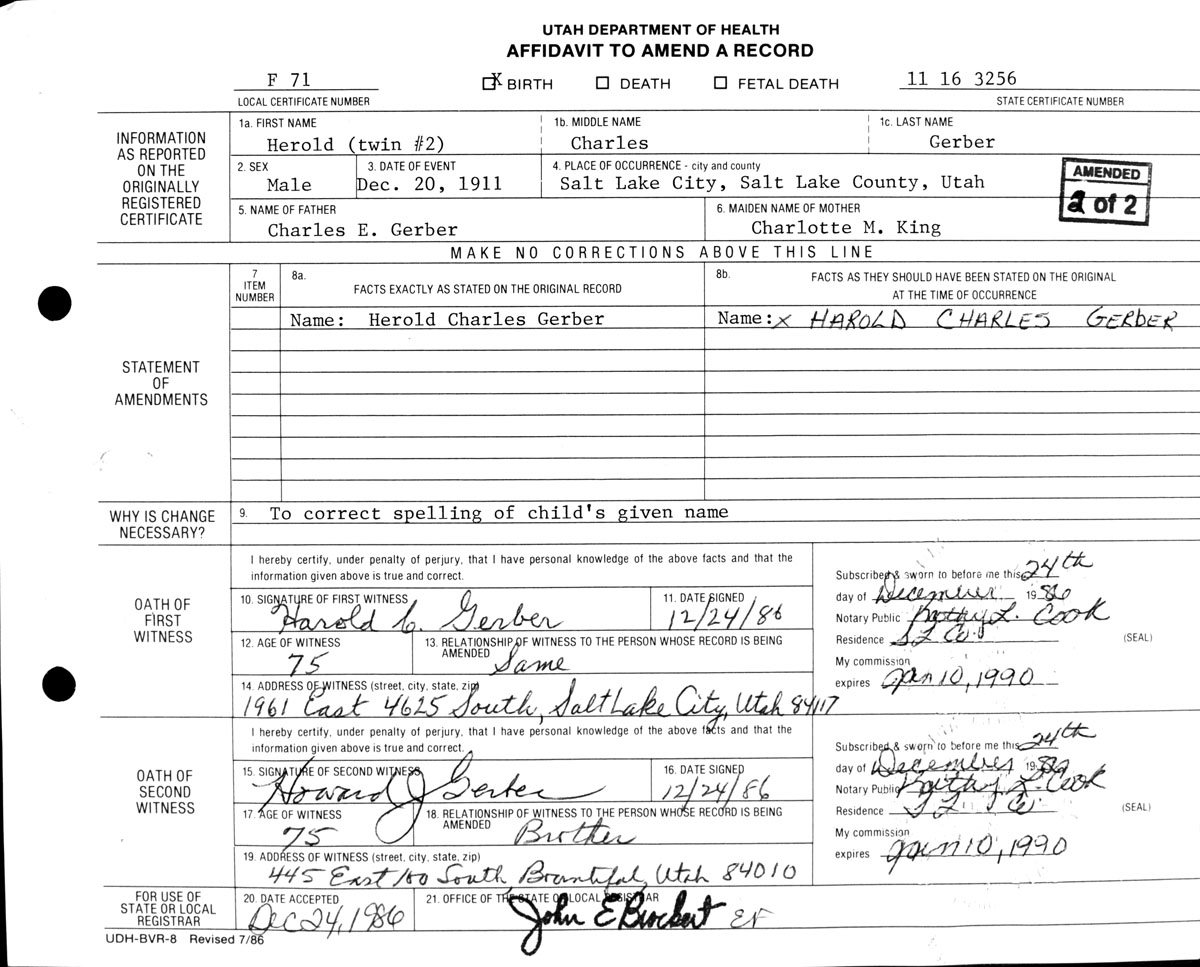 UTAH DEPARTMENT OF HEALTH
AFFIDAVIT TO AMEND A RECORD
F 71 X BIRTH DEATH FETAL DEATH 11 16 3256
LOCAL CERTIFICATE NUMBER STATE CERTIFICATE NUMBER
INFORMATION AS REPORTED ON THE ORIGINALLY REGISTERED CERTIFICATE
1a. FIRST NAME 1b. MIDDLE NAME 1c. LAST NAME
Herold (twin #2) Charles Gerber
2. SEX 3. DATE OF EVENT 4. PLACE OF OCCURRENCE - city and county
Male Dec. 20, 1911 Salt Lake City, Salt Lake County, Utah
AMENDED
2 of 2
5. NAME OF FATHER 6. MAIDEN NAME OF MOTHER
Charles E. Gerber Charlotte M. King
MAKE NO CORRECTIONS ABOVE THIS LINE
STATEMENT OF AMENDMENTS
7 ITEM NUMBER
8a. FACTS EXACTLY AS STATED ON THE ORIGINAL RECORD
8b. FACTS AS THEY SHOULD HAVE BEEN STATED ON THE ORIGINAL
AT THE TIME OF OCCURRENCE
Name: Herold Charles Gerber Name: x HAROLD CHARLES GERBER
WHY IS CHANGE NECESSARY?
9. To correct spelling of child's given name
OATH OF FIRST WITNESS
I hereby certify, under penalty of perjury, that I have personal knowledge of the above facts and that the
information given above is true and correct.
10. SIGNATURE OF FIRST WITNESS 11. DATE SIGNED
Harold C. Gerber 12/24/86
12. AGE OF WITNESS 13. RELATIONSHIP OF WITNESS TO THE PERSON WHOSE RECORD IS BEING AMENDED
75 Same
14. ADDRESS OF WITNESS (street, city, state, zip)
1961 East 4625 South, Salt Lake City, Utah 84117
Subscribed & sworn to before me this 24th
day of December 1986
Notary Public Kathy L. Cook
Residence S L Co. (SEAL)
My commission
expires Jan 10, 1990
OATH OF SECOND WITNESS
I hereby certify, under penalty of perjury, that I have personal knowledge of the above facts and that the
information given above is true and correct.
15. SIGNATURE OF SECOND WITNESS 16. DATE SIGNED
Howard J Gerber 12/24/86
17. AGE OF WITNESS 18. RELATIONSHIP OF WITNESS TO THE PERSON WHOSE RECORD IS BEING AMENDED
75 Brother
19. ADDRESS OF WITNESS (street, city, state, zip)
445 East 100 South, Bountiful, Utah 84010
Subscribed & sworn to before me this 24th
day of December 1986
Notary Public Kathy L. Cook
Residence S L Co. (SEAL)
My commission
expires Jan 10, 1990
FOR USE OF STATE OR LOCAL REGISTRAR
20. DATE ACCEPTED 21. OFFICE OF THE STATE OR LOCAL REGISTRAR
Dec 24, 1986 John E Brockert
UDH-BVR-8 Revised 7/86